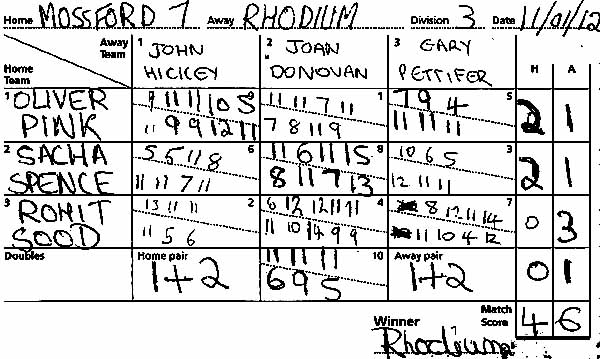 Home MOSSFORD 7 Away RHODIUM Division 3 Date 11/01/12
Away Team 1 JOHN HICKEY 2 JOAN DONOVAN 3 GARY PETTIFER H A
Home Team
1 OLIVER PINK
9 11 11 10 5 9
11 9 9 12 11
11 11 7 11 1
7 8 11 9
7 9 4 5
11 11 11
2 1
2 SACHA SPENCE
5 5 11 8 6
11 11 7 11
11 6 11 15 8
8 11 7 13
10 6 5 3
12 11 11
2 1
3 ROHIT SOOD
13 11 11 2
11 5 6
6 12 12 11 11 4
11 10 14 9 9
8 12 11 14 7
11 10 4 12
0 3
Doubles
Home pair
1+2
11 11 11 10
6 9 5
Away pair
1+2
0 1
Winner Match Score 4 6
Rhodium